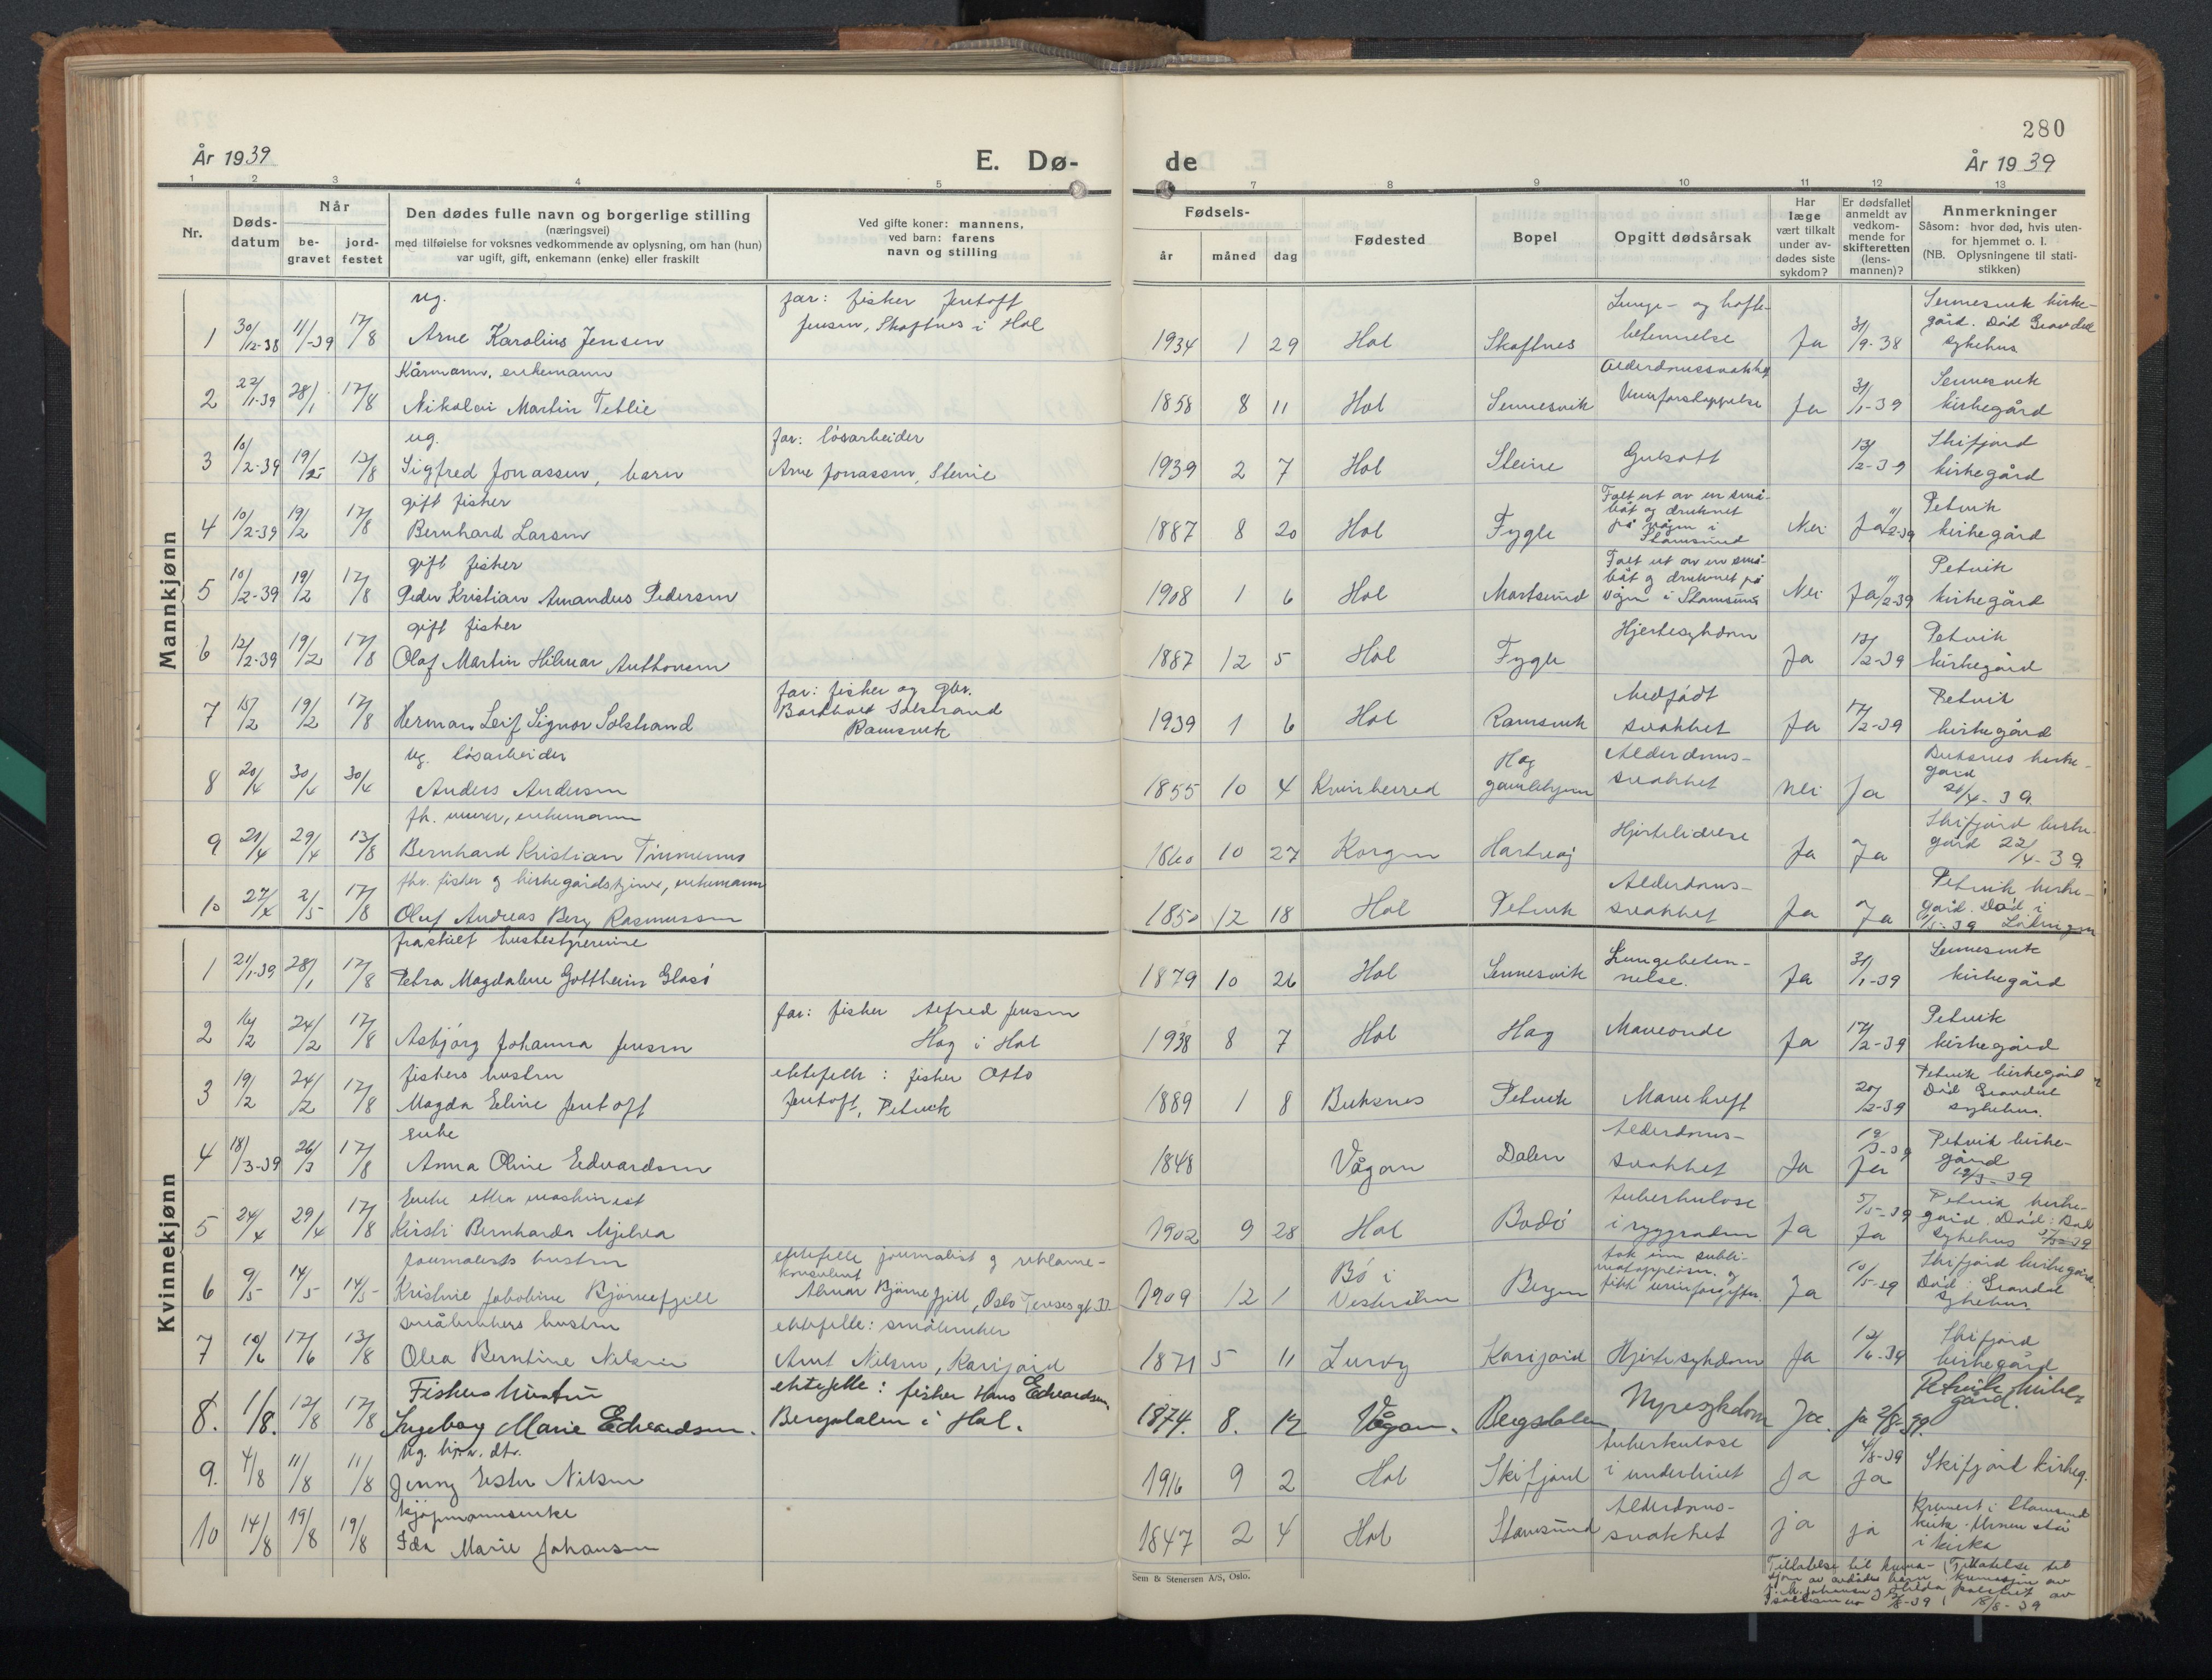 280
År 1939
E. Dø-
de
År 1939
1 2 3 4 5 7 8 9 10 11 12 13
Nr.
Døds-
datum
Når
be-
gravet
jord-
festet
Den dødes fulle navn og borgerlige stilling
(næringsvei)
med tilføielse for voksnes vedkommende av oplysning, om han (hun)
var ugift, gift, enkemann (enke) eller fraskilt
Ved gifte koner: mannens,
ved barn: farens
navn og stilling
Fødsels-
år måned dag
Fødested
Bopel
Opgitt dødsårsak
Har
læge
vært tilkalt
under av-
dødes siste
sykdom?
Er dødsfallet
anmeldt av
vedkom-
mende for
skifteretten
(lens-
mannen)?
Anmerkninger
Såsom: hvor død, hvis uten-
for hjemmet o. l.
(NB. Oplysningene til stati-
stikken)
Mannkjønn
ug. far: fisker Jentoft Lunge- og hofte- Sennesvik kirke-
1 30/12-38 11/1-39 17/8 Arne Karolius Jensen Jensen, Skaftnes i Hol 1934 1 29 Hol Skaftnes betennelse Ja 31/9-38 gård. Død Gravdal
sykehus
Kårmann, enkemann Alderdomssvakhet Sennesvik
2 22/1-39 28/1 17/8 Nikolai Martin Tetlie 1858 8 11 Hol Sennesvik Urinforstoppelse Ja 31/1-39 kirkegård
ug. far: løsarbeider Skifjord
3 10/2-39 19/2 13/8 Sigfred Jonassen, barn Arne Jonassen, Steine 1939 2 7 Hol Steine Gulsott 13/2-39 kirkegård
gift fisker Falt ut av en små- Petvik
4 10/2-39 19/2 17/8 Bernhard Larsen 1887 8 20 Hol Fygle båt og druknet på vågen i Stamsund Nei Ja 11/2-39 kirkegård
gift fisker Falt ut av en små- Petvik
5 10/2-39 19/2 17/8 Peder Kristian Amandus Pedersen 1908 1 6 Hol Mortsund båt og druknet på vågen i Stamsund Nei Ja 11/2-39 kirkegård
gift fisker Hjertesykdom Petvik
6 12/2-39 19/2 17/8 Olaf Martin Hilmar Anthonsen 1887 12 5 Hol Fygle Ja 13/2-39 kirkegård
far: fisker og gbr. Medfødt Petvik
7 15/2 19/2 17/8 Herman Leif Signor Solstrand Solstrand Ramsvik 1939 1 6 Hol Ramsvik svakhet Ja 17/2-39 kirkegård
ug. løsarbeider Hag Alderdoms- Buksnes kirke-
8 20/4 30/4 30/4 Anders Andersen 1855 10 4 Kvinherred gamlehjem svakhet nei Ja gård
21/4-39
fh. murer, enkemann Hjertelidelse Skifjord kirke-
9 21/4 29/4 13/8 Bernhard Kristian Timmermo 1860 10 27 Korgen Hartvåg Ja Ja gård 22/4-39
fhv. fisker og kirkegårdstjener, enkemann Alderdoms- Petvik kirke-
10 27/4 2/5 17/8 Oluf Andreas Berg Rasmussen 1850 12 18 Hol Petvik svakhet Ja Ja gård. Død i
1/5-39
Kvinnekjønn
fraskilt husbestyrerinne Lungebeten- Sennesvik
1 21/1-39 28/1 17/8 Petra Magdalene Gottheim Glasø 1879 10 26 Hol Sennesvik nelse. Ja 31/1-39 kirkegård
far: fisker Alfred Jensen Petvik
2 16/2 24/2 17/8 Asbjørg Johanna Jensen Hag i Hol 1938 8 7 Hol Hag Maveonde Ja 17/2-39 kirkegård
fiskers hustru ektefelle: fisker Otto Petvik kirkegård
3 19/2 24/2 17/8 Magda Eline Jentoft Jentoft, Petvik 1889 1 8 Buksnes Petvik Mavekreft 20/2-39 Død Gravdal
sykehus.
enke Alderdoms- 19/3-39 Petvik kirke-
4 18/3-39 26/3 17/8 Anna Oline Edvardsen 1848 Vågan Dalen svakhet Ja Ja gård
19/3-39
Enke etter maskinist tuberkulose 5/5-39 Petvik kirke-
5 24/4 29/4 17/8 Kirsti Bernharda Mjelva 1902 9 28 Hol Bodø i ryggraden Ja Ja gård. Død: Bodø
sykehus 5/5-39
Journalists hustru ektefelle journalist og reklame- tok inn subli- Skifjord kirkegård.
6 9/5 14/5 14/5 Kristine Jakobine Bjørnefjell konsulent Bjørnefjell, Oslo 1909 12 1 Bø i Vesterålen Bergen matoppløsn. og fikk urinforgiftn. Ja 10/5-39 Død: Gravdal
sykehus.
småbrukers hustru ektefelle: småbruker Skifjord
7 10/6 17/6 13/8 Olea Berntine Nilsen Arnt Nilsen, Karijord 1871 5 11 Lurøy Karijord Hjertesykdom Ja 12/6-39 kirkegård
Fiskers hustru ektefelle: fisker Hans Edvardsen, Petvik kirke-
8. 1/8. 12/8 17/8 Ingeborg Marie Edvardsen. Bergsdalen i Hol. 1874. 8. 17 Vågan. Bergsdalen Nyresykdom Ja. ja 2/8-39. gård.
Ug. hjem. dtr. tuberkulose 4/8-39
9. 4/8 11/8 11/8 Jenny Ester Nilsen 1916 9 2 Hol Skifjord i underlivet Ja Ja Skifjord kirkeg.
kjøpmannsenke Alderdoms- Kremert i Stamsund
10 14/8 19/8 19/8 Ida Marie Johansen 1847 2 4 Hol Stamsund svakhet ja ja kirke. Urnen står
i kirka
Sem & Stenersen A/S, Oslo.
Tillatelse til krema-
sjon av avdødes barn
J. M. Johansen og Hilda
/8-39
Tillatelse til
kremasjon av
politiet av
18/8-39